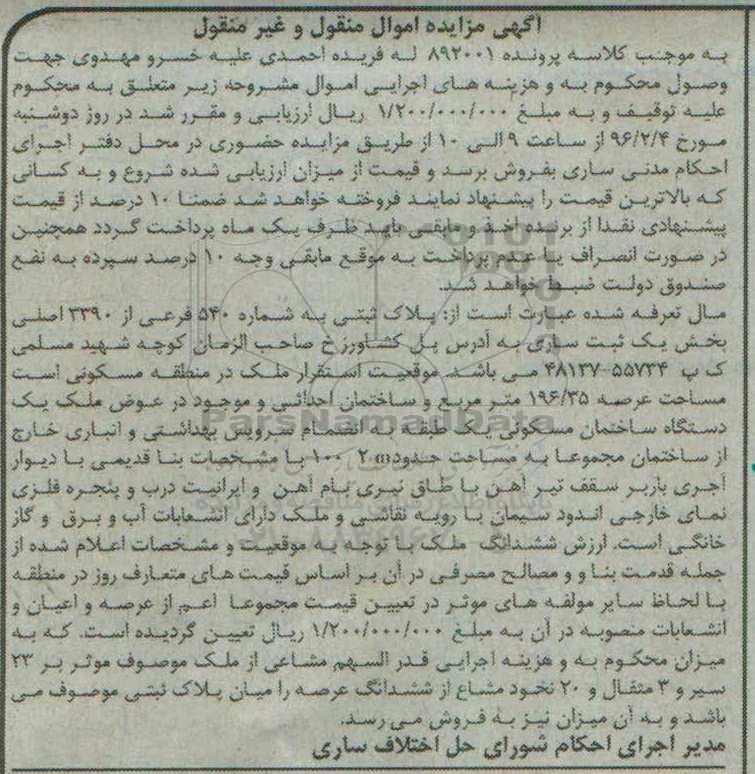 آگهی مزایده اموال منقول و غیر منقول
به موجب کلاسه پرونده ۸۹۲۰۰۱ له فریده احمدی علیه خسرو مهدوی جهت
وصول محکوم به و هزینه های اجرایی اموال مشروحه زیر متعلق به محکوم
علیه توقیف و به مبلغ ۱/۲۰۰/۰۰۰/۰۰۰ ریال ارزیابی و مقرر شد در روز دوشنبه
مورخ ۹۶/۲/۴ از ساعت ۹ الی ۱۰ از طریق مزایده حضوری در محل دفتر اجرای
احکام مدنی ساری بفروش برسد و قیمت از میزان ارزیابی شده شروع و به کسانی
که بالاترین قیمت را پیشنهاد نمایند فروخته خواهد شد ضمنا ۱۰ درصد از قیمت
پیشنهادی نقدا از برنده اخذ و مابقی باید ظرف یک ماه پرداخت گردد همچنین
در صورت انصراف یا عدم پرداخت به موقع مابقی وجه ۱۰ درصد سپرده به نفع
صندوق دولت ضبط خواهد شد.
مال تعرفه شده عبارت است از: پلاک ثبتی به شماره ۵۴۰ فرعی از ۳۳۹۰ اصلی
بخش یک ثبت ساری به آدرس پل کشاورز خ صاحب الزمان کوچه شهید مسلمی
ک پ ۵۵۷۳۴-۴۸۱۳۷ می باشد. موقعیت استقرار ملک در منطقه مسکونی است
مساحت عرصه ۱۹۶/۳۵ متر مربع و ساختمان احداثی و موجود در عوض ملک یک
دستگاه ساختمان مسکونی یک طبقه به انضمام سرویس بهداشتی و انباری خارج
از ساختمان مجموعا به مساحت حدود ۱۰۰ ۲m با مشخصات بنا قدیمی با دیوار
آجری باربر سقف تیر آهن با طاق نیری بام آهن و ایرانیت درب و پنجره فلزی
نمای خارجی اندود سیمان با رویه نقاشی و ملک دارای انشعابات آب و برق و گاز
خانگی است. ارزش ششدانگ ملک با توجه به موقعیت و مشخصات اعلام شده از
جمله قدمت بنا و و مصالح مصرفی در آن بر اساس قیمت های متعارف روز در منطقه
با لحاظ سایر مولفه های موثر در تعیین قیمت مجموعا اعم از عرصه و اعیان و
انشعابات منصوبه در آن به مبلغ ۱/۲۰۰/۰۰۰/۰۰۰ ریال تعیین گردیده است. که به
میزان محکوم به و هزینه اجرایی قدر السهم مشاعی از ملک موصوف موثر بر ۲۳
سیر و ۳ مثقال و ۲۰ نخود مشاع از ششدانگ عرصه را میان پلاک ثبتی موصوف می
باشد و به آن میزان نیز به فروش می رسد.
مدیر اجرای احکام شورای حل اختلاف ساری
ParsNamadData